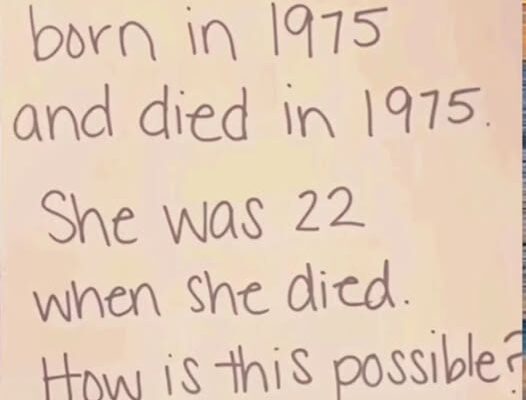 born in 1975
and died in 1975.
She was 22
when she died.
How is this possible?